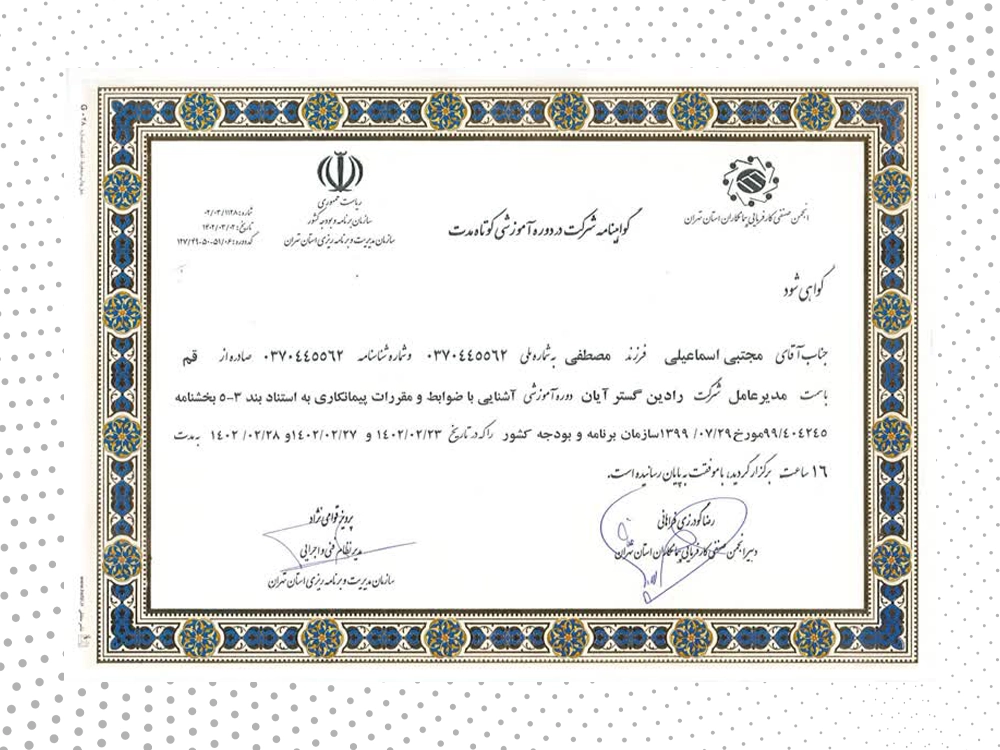 انجمن صنفی کارفرمایی پیمانکاران استان تهران
گواهینامه شرکت در دوره آموزشی کوتاه مدت
ریاست جمهوری
سازمان برنامه و بودجه کشور
سازمان مدیریت و برنامه ریزی استان تهران
شماره: ۰۲/۰۳/۱۱۲۸
تاریخ: ۱۴۰۲/۰۳/۰۲
کد دوره: ۱۲۷/۴۹-۵۰-۵۹/۰۶
گواهی شود
جناب آقای مجتبی اسماعیلی فرزند مصطفی به شماره ملی ۰۳۷۰۴۴۵۵۶۲ و شماره شناسنامه ۰۳۷۰۴۴۵۵۶۲ صادره از قم
باسمت مدیرعامل شرکت رادین گستر آیان دوره آموزشی آشنایی با ضوابط و مقررات پیمانکاری به استناد بند ۳-۵ بخشنامه
۹۹/۴۰۴۲۴۵مورخ ۰۷/۲۹/ ۱۳۹۹سازمان برنامه و بودجه کشور را که در تاریخ ۱۴۰۲/۰۲/۲۳ و ۱۴۰۲/۰۲/۲۷و ۰۲/۲۸/ ۱۴۰۲ به مدت
۱۶ ساعت برگزار گردید، با موفقت به پایان رسانیده است.
رضا گودرزی فراهانی
دبیر انجمن صنفی کارفرمایی پیمانکاران استان تهران
پرویز قوامی نژاد
مدیر نظام فنی و اجرایی
سازمان مدیریت و برنامه ریزی استان تهران